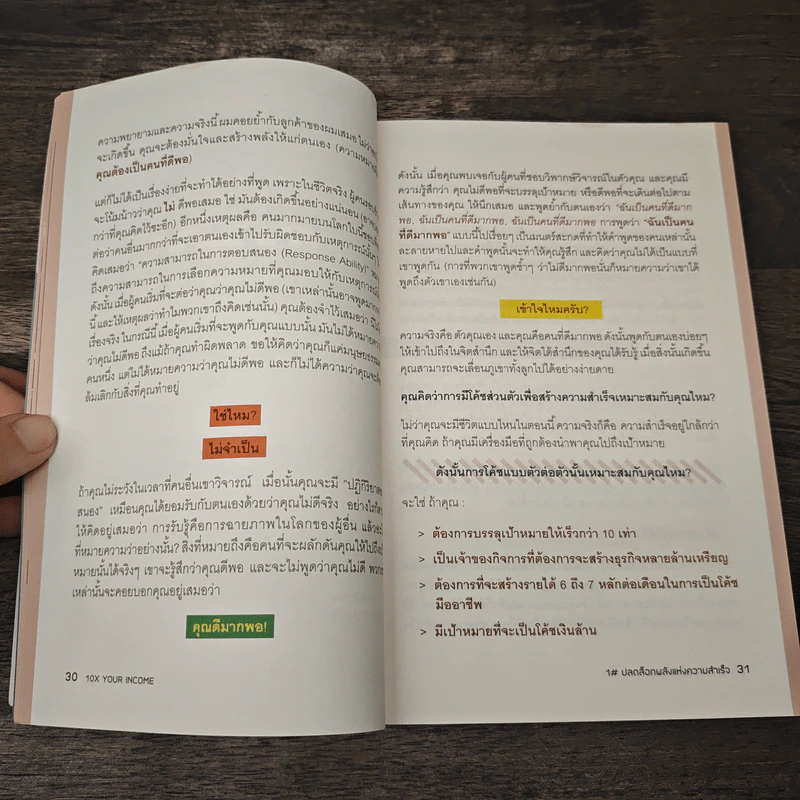 ความพยายามและความจริงนี้ ผมคอยย้ำกับลูกค้าของผมเสมอ ไม่ว่า
จะเกิดขึ้น คุณจะต้องมั่นใจและสร้างพลังให้แก่ตนเอง (ความหมาย
คุณต้องเป็นคนที่ดีพอ)
แต่ก็ไม่ได้เป็นเรื่องง่ายที่จะทำได้อย่างที่พูด เพราะในชีวิตจริง ผู้คน
จะโน้มน้าวว่าคุณ ไม่ ดีพอเสมอ ใช่ มันต้องเกิดขึ้นอย่างแน่นอน
กว่าที่คุณคิดไว้ซะอีก) อีกหนึ่งเหตุผลคือ คนมากมายบนโลกใบนี้
ต่อว่าคนอื่นมากกว่าที่จะเอาตนเองเข้าไปรับผิดชอบกับเหตุการณ์นั้นๆ
คิดเสมอว่า "ความสามารถในการตอบสนอง (Response Ability)"
ถึงความสามารถในการเลือกความหมายที่คุณมอบให้กับเหตุการณ์
ดังนั้น เมื่อผู้คนเริ่มที่จะต่อว่าคุณว่าคุณไม่ดีพอ (เขาเหล่านั้นอาจพูด
นี้ และให้เหตุผลว่าทำไมพวกเขาถึงคิดเช่นนั้น) คุณต้องจำไว้เสมอว่า
เรื่องจริง ในกรณีนี้ เมื่อผู้คนเริ่มที่จะพูดกับคุณแบบนั้น มันไม่ได้หมายความ
ว่าคุณไม่ดีพอ ถึงแม้ถ้าคุณทำผิดพลาด ขอให้คิดว่าคุณก็แค่มนุษยธรรมดา
คนหนึ่ง แต่ไม่ได้หมายความว่าคุณไม่ดีพอ และก็ไม่ได้ความว่าคุณจะต้อง
ล้มเลิกกับสิ่งที่คุณทำอยู่
ใช่ไหม?
ไม่จำเป็น
ถ้าคุณไม่ระวังในเวลาที่คนอื่นเขาวิจารณ์ เมื่อนั้นคุณจะมี "ปฏิกิริยา
สนอง" เหมือนคุณได้ยอมรับกับตนเองด้วยว่าคุณไม่ดีจริง อย่างไรก็ตาม
ให้คิดอยู่เสมอว่า การรับรู้คือการฉายภาพในโลกของผู้อื่น แล้ว
ที่หมายความว่าอย่างนั้น? สิ่งที่หมายถึงคือคนที่จะผลักดันคุณให้ไปถึง
หมายนั้นได้จริงๆ เขาจะรู้สึกว่าคุณดีพอ และจะไม่พูดว่าคุณไม่ดี พวก
เหล่านั้นจะคอยบอกคุณอยู่เสมอว่า
คุณดีมากพอ!
30 10X YOUR INCOME
ดังนั้น เมื่อคุณพบเจอกับผู้คนที่ชอบวิพากษ์วิจารณ์ในตัวคุณ และคุณมี
ความรู้สึกว่า คุณไม่ดีพอที่จะบรรลุเป้าหมาย หรือดีพอที่จะเดินต่อไปตาม
เส้นทางของคุณ ให้นึกเสมอ และพูดย้ำกับตนเองว่า "ฉันเป็นคนที่ดีมาก
พอ, ฉันเป็นคนที่ดีมากพอ, ฉันเป็นคนที่ดีมากพอ การพูดว่า "ฉันเป็นคน
ที่ดีมากพอ" แบบนี้ไปเรื่อยๆ เป็นมนตร์สะกดที่ทำให้คำพูดของคนเหล่านั้น
ละลายหายไปและคำพูดนั้นจะทำให้คุณรู้สึก และคิดว่าคุณไม่ได้เป็นแบบที่
เขาพูดกัน (การที่พวกเขาพูดซ้ำๆ ว่าไม่ดีมากพอนั้นก็หมายความว่าเขาได้
พูดถึงตัวเขาเองเช่นกัน)
เข้าใจไหมครับ?
ความจริงคือ ตัวคุณเอง และคุณคือคนที่ดีมากพอ ดังนั้นพูดกับตนเองบ่อยๆ
ให้เข้าไปถึงในจิตสำนึก และให้จิตใต้สำนึกของคุณได้รับรู้ เมื่อสิ่งนั้นเกิดขึ้น
คุณสามารถจะเลื่อนภูเขาทั้งลูกไปได้อย่างง่ายดาย
คุณคิดว่าการมีโค้ชส่วนตัวเพื่อสร้างความสำเร็จเหมาะสมกับคุณไหม?
ไม่ว่าคุณจะมีชีวิตแบบไหนในตอนนี้ ความจริงก็คือ ความสำเร็จอยู่ใกล้กว่า
ที่คุณคิด ถ้าคุณมีเครื่องมือที่ถูกต้องนำพาคุณไปถึงเป้าหมาย
ดังนั้นการโค้ชแบบตัวต่อตัวนั้นเหมาะสมกับคุณไหม?
จะใช่ ถ้าคุณ :
> ต้องการบรรลุเป้าหมายให้เร็วกว่า 10 เท่า
> เป็นเจ้าของกิจการที่ต้องการจะสร้างธุรกิจหลายล้านเหรียญ
> ต้องการที่จะสร้างรายได้ 6 ถึง 7 หลักต่อเดือนในการเป็นโค้ช
มืออาชีพ
> มีเป้าหมายที่จะเป็นโค้ชเงินล้าน
1# ปลดล็อกพลังแห่งความสำเร็จ 31